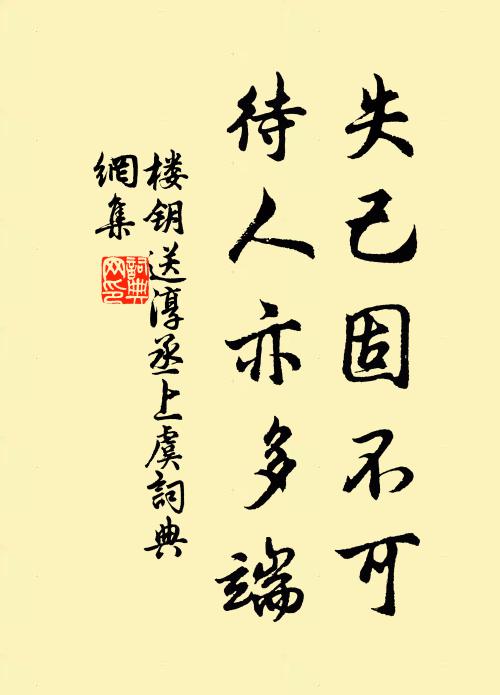 失己固不可
待人亦多端
楼钥送淳丞上虞詞典
網集
詞典网印